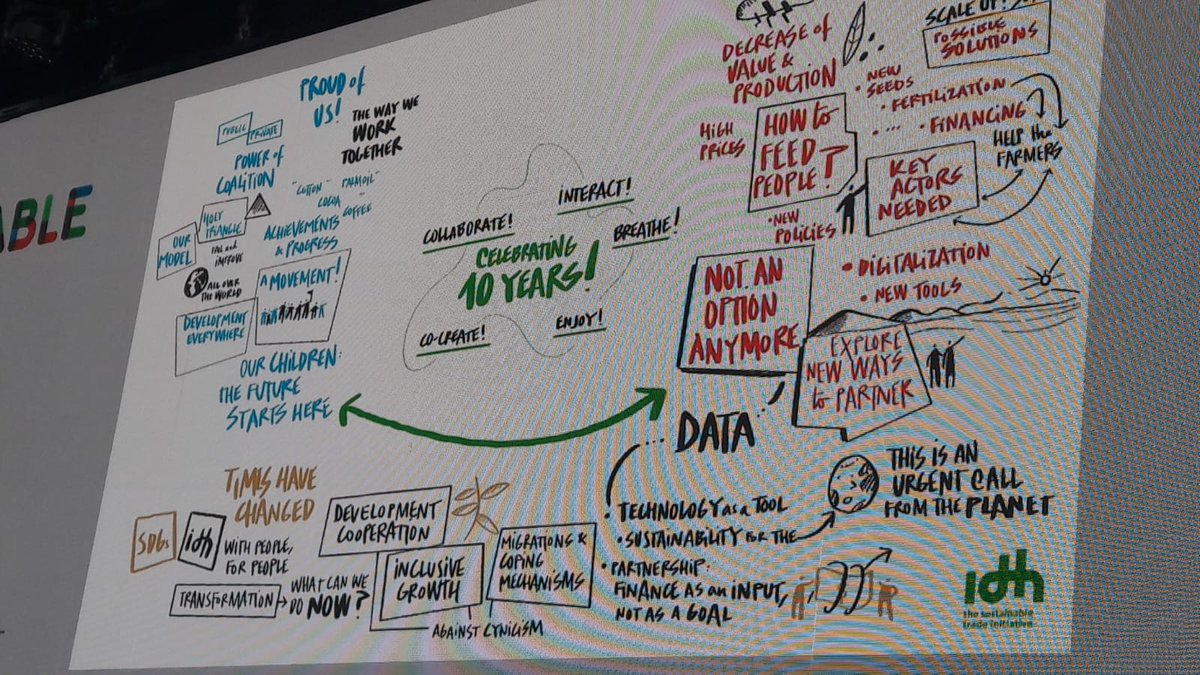 ABLE
PROUD of
US!
THE WAY WE
WORK
TOGETHER
PUBLIC
PRIVATE
POWER of
COALITION
"COTTON"
PALMOIL"
COCOA
COFFEE
HOLY
TRIANGLE
ACHIEVEMENTS
& PROGRESS
OUR
MODEL
FAIL and
IMPROVE
ALL OVER
THE WORLD
A MOVEMENT!
DEVELOPMENT
EVERYWHERE
OUR CHILDREN:
THE FUTURE
STARTS HERE
INTERACT!
COLLABORATE!
BREATHE!
CELEBRATING
10 YEARS!
CO-CREATE!
ENJOY!
DECREASE of
VALUE &
PRODUCTION
SCALE UP!
POSSIBLE
SOLUTIONS
• NEW
SEEDS
• FERTILIZATION
• ...
• FINANCING
HELP the
FARMERS
HIGH
PRICES
HOW to
FEED
PEOPLE?
KEY
ACTORS
NEEDED
• NEW
POLICIES
NOT AN
OPTION
ANYMORE
• DIGITALIZATION
• NEW TOOLS
EXPLORE
NEW WAYS
to PARTNER
... DATA ...
THIS IS AN
URGENT CALL
FROM the PLANET
• TECHNOLOGY as a TOOL
• SUSTAINABILITY FOR THE
• PARTNERSHIP.
FINANCE as an INPUT,
NOT AS A GOAL
TIMES HAVE
CHANGED
SDGs
idh
WITH PEOPLE,
FOR PEOPLE
TRANSFORMATION
WHAT CAN WE
DO NOW?
DEVELOPMENT
COOPERATION
INCLUSIVE
GROWTH
MIGRATIONS &
COPING
MECHANISMS
AGAINST CYNICISM
idh
the sustainable
trade initiative